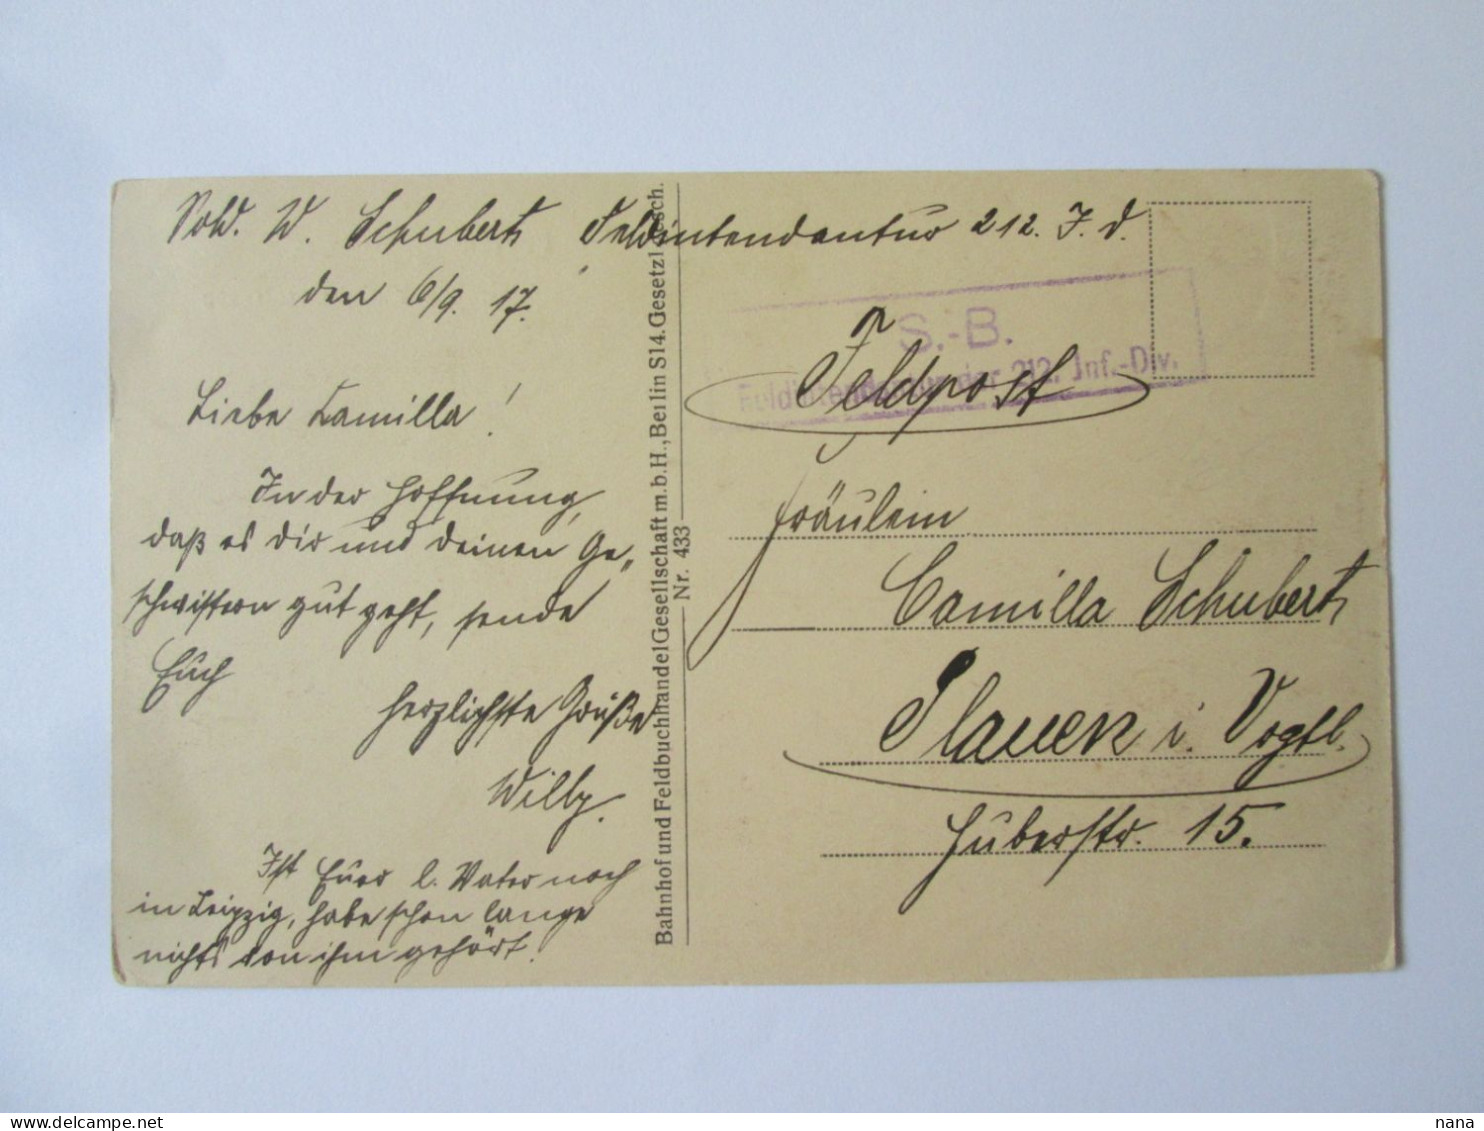 Sold. W. Schubert, Feldintendantur 212. J. D.
den 6/9. 17.
Liebe Camilla!
In der Hoffnung,
daß es Dir und Deinen Ge„
schwistern gut geht, sende
Euch
herzlichste Grüße
Willy.
Ist Euer l. Vater noch
in Leipzig, habe schon lange
nichts von ihm gehört.
Bahnhof und Feldbuchhandel Gesellschaft m.b.H., Berlin S14. Gesetzl. gesch.
Nr. 433
S.-B.
Feldintendantur der 212. Inf.-Div.
Feldpost
Fräulein
Camilla Schubert
Plauen i. Vogtl.
Huberstr. 15.
nana